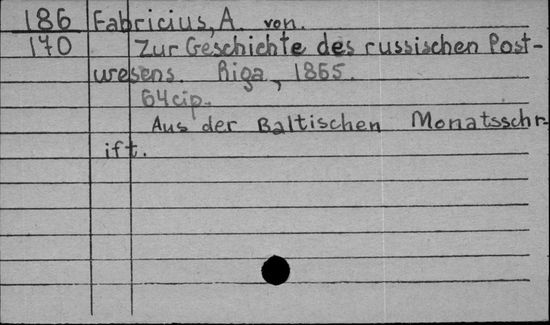 186 Fabricius, A. von.
170 Zur Geschichte des russischen Post-
wesens. Riga, 1865.
64cip.
Aus der Baltischen Monatsschr-
ift.